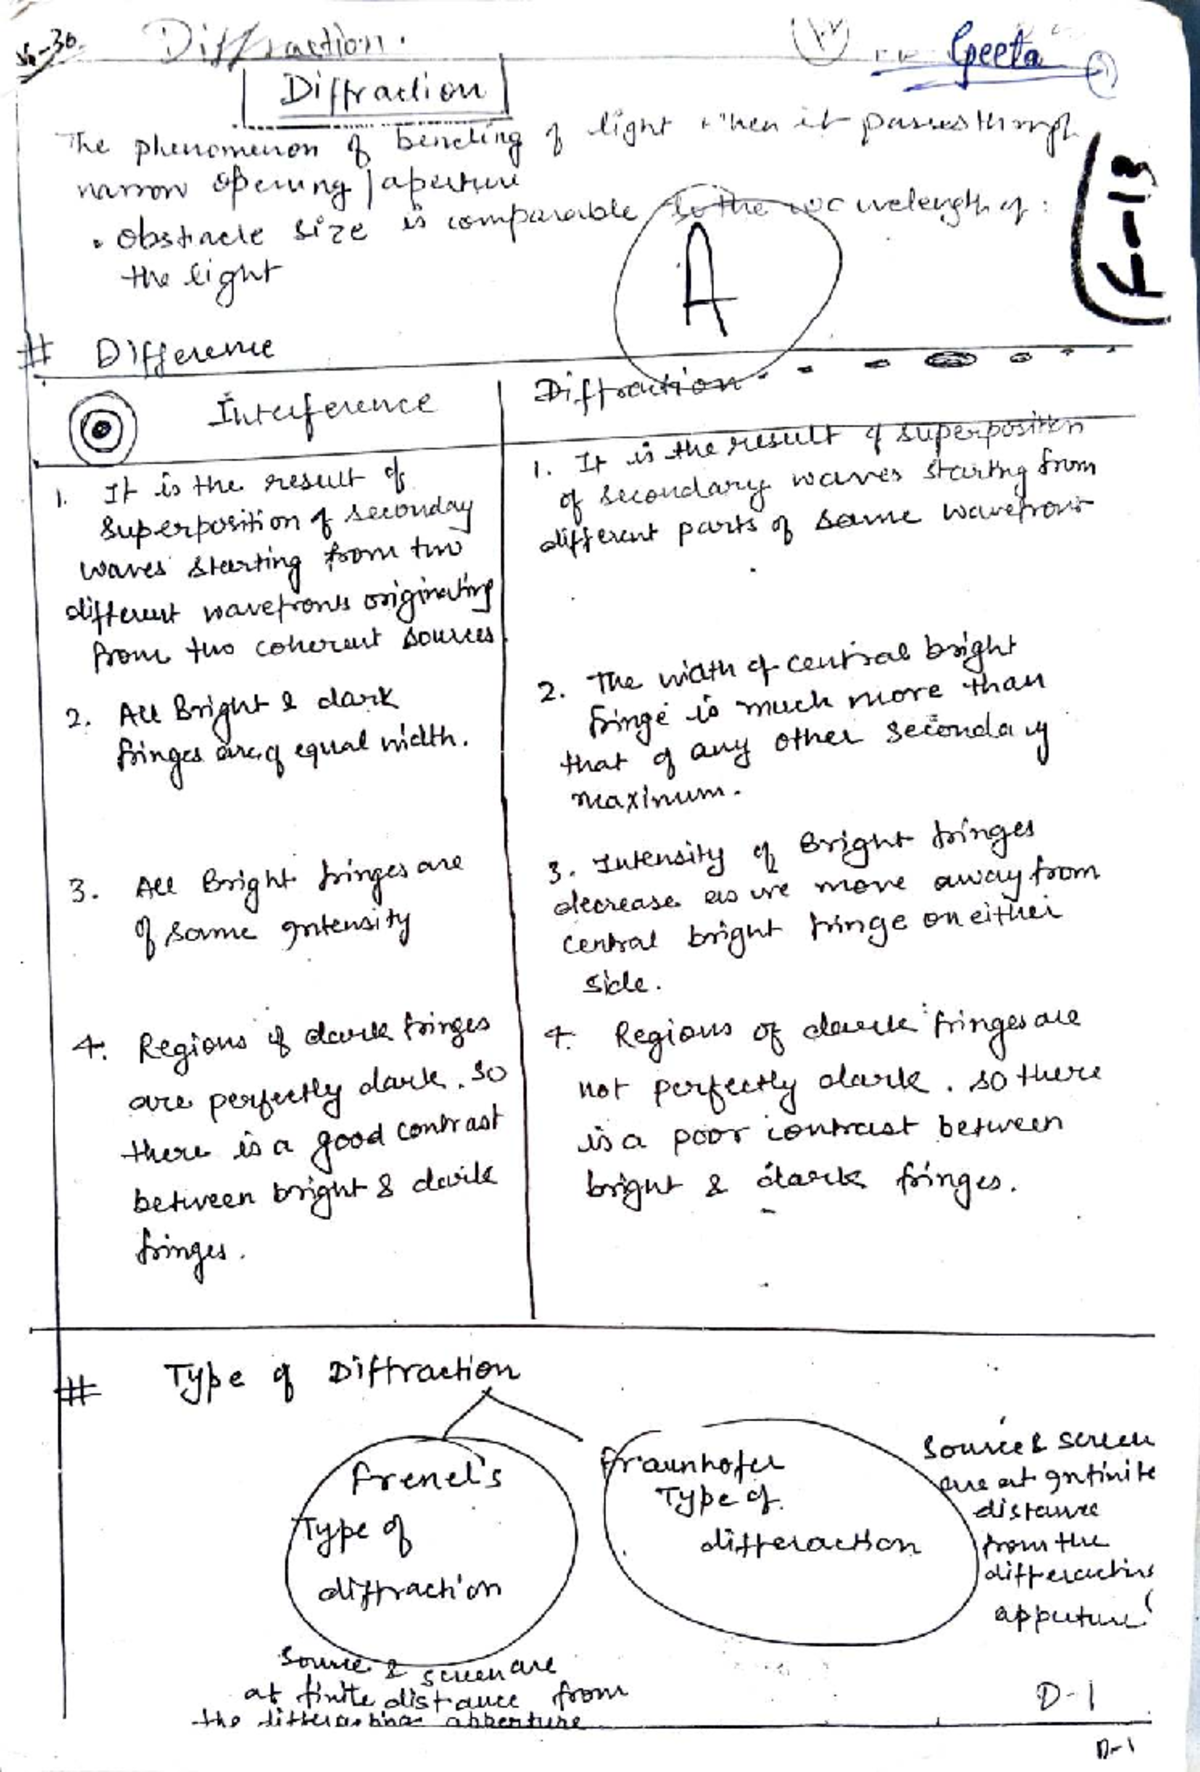 Diffraction.
Geeta
Diffraction
The phenomenon of bending of light when it passes through
narrow opening / aperture
• Obstacle size is comparable to the wavelength of
the light
A
F-13
# Difference
Interference
Diffraction
1. It is the result of
superposition of seconday
waves starting from two
different wavefronts originating
from two coherent sources
2. All Bright & dark
fringes are of equal width.
3. All Bright fringes are
of same Intensity
4. Regions of dark fringes
are perfectly dark. So
there is a good contrast
between bright & dark
fringes.
1. It is the result of superposition
of secondary waves starting from
different parts of same wavefront
2. The width of central bright
fringe is much more than
that of any other seconday
maximum.
3. Intensity of Bright fringes
decrease as we move away from
central bright fringe on either
side.
4. Regions of dark fringes are
not perfectly dark. so there
is a poor contrast between
bright & dark fringes.
# Type of Diffraction
Frenel's
Type of
diffraction
Source & screen are
at finite distance from
the diffracting apperture
Fraunhofer
Type of
differaction
Source & screen
are at Infinite
distance
from the
differacting
apputure
D-1
D-1